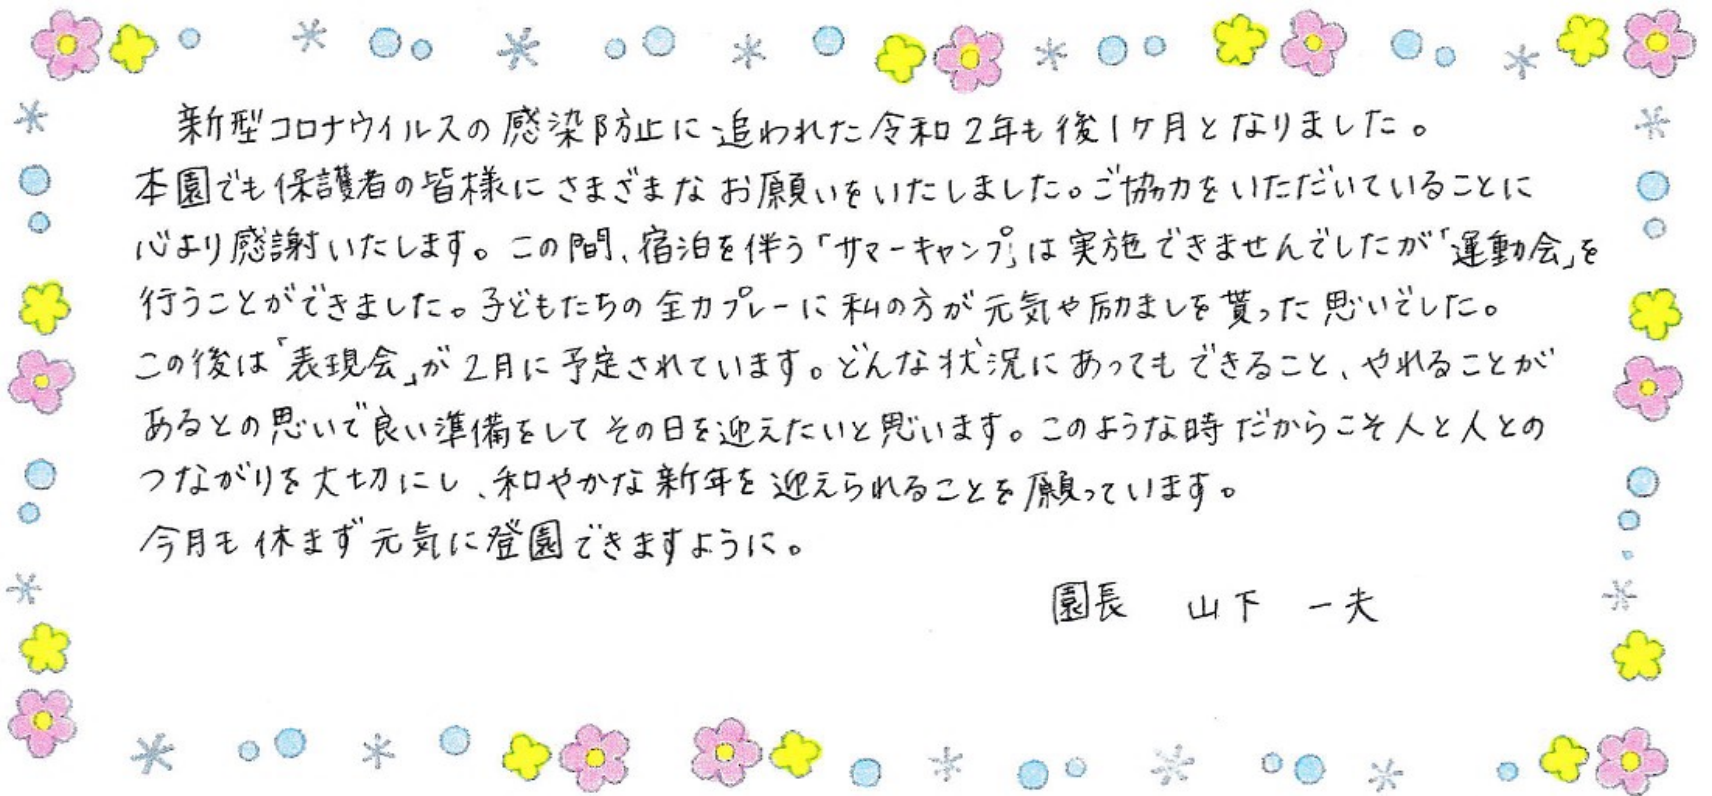 新型コロナウイルスの感染防止に追われた令和2年も後1ケ月となりました。
本園でも保護者の皆様にさまざまなお願いをいたしました。ご協力をいただいていることに
心より感謝いたします。この間、宿泊を伴う「サマーキャンプ」は実施できませんでしたが「運動会」を
行うことができました。子どもたちの全力プレーに私の方が元気や励ましを貰った思いでした。
この後は「表現会」が2月に予定されています。どんな状況にあってもできること、やれることが
あるとの思いで良い準備をしてその日を迎えたいと思います。このような時だからこそ人と人との
つながりを大切にし、和やかな新年を迎えられることを願っています。
今月も休まず元気に登園できますように。
園長　山下　一夫